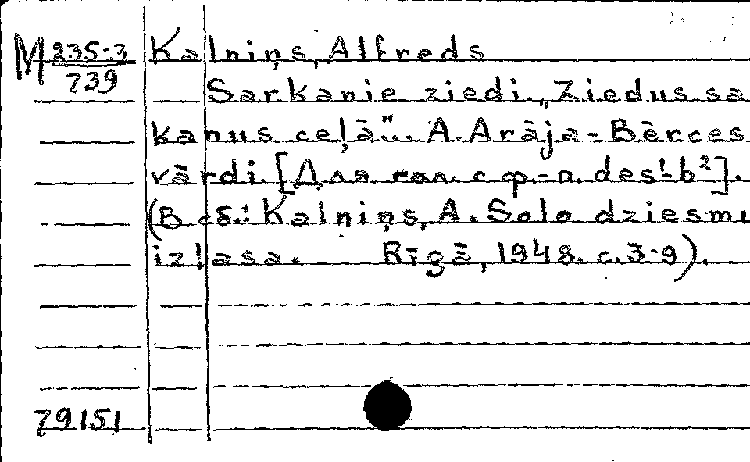 M 235-3 Kalniņs, Alfreds
739
Sarkanie ziedi. „Ziedus sa
kanus ceļā”... A. Arāja-Bērces
vārdi. [Для гол. с ф.-п. des¹-b²].
(В сб.: Kalniņs, A. Solo dziesmu
izlasa. Rīgā, 1948. с. 3-9).
79151